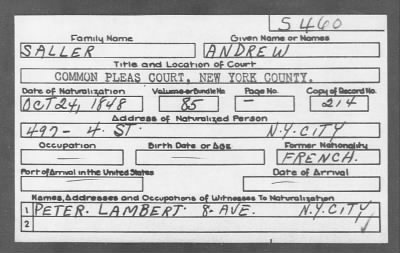 S 460
Family Name Given Name or Names
SALLER ANDREW
Title and Location of Court
COMMON PLEAS COURT, NEW YORK COUNTY.
Date of Naturalization Volume or Bundle No. Page No. Copy of Record No.
OCT 24, 1848 85 – 214
Address of Naturalized Person
497 - 4. ST. N.Y. CITY
Occupation Birth Date or Age Former Nationality
FRENCH.
Port of Arrival in the United States Date of Arrival
Names, Addresses and Occupations of Witnesses To Naturalization
1 PETER. LAMBERT. 8- AVE. N.Y. CITY
2